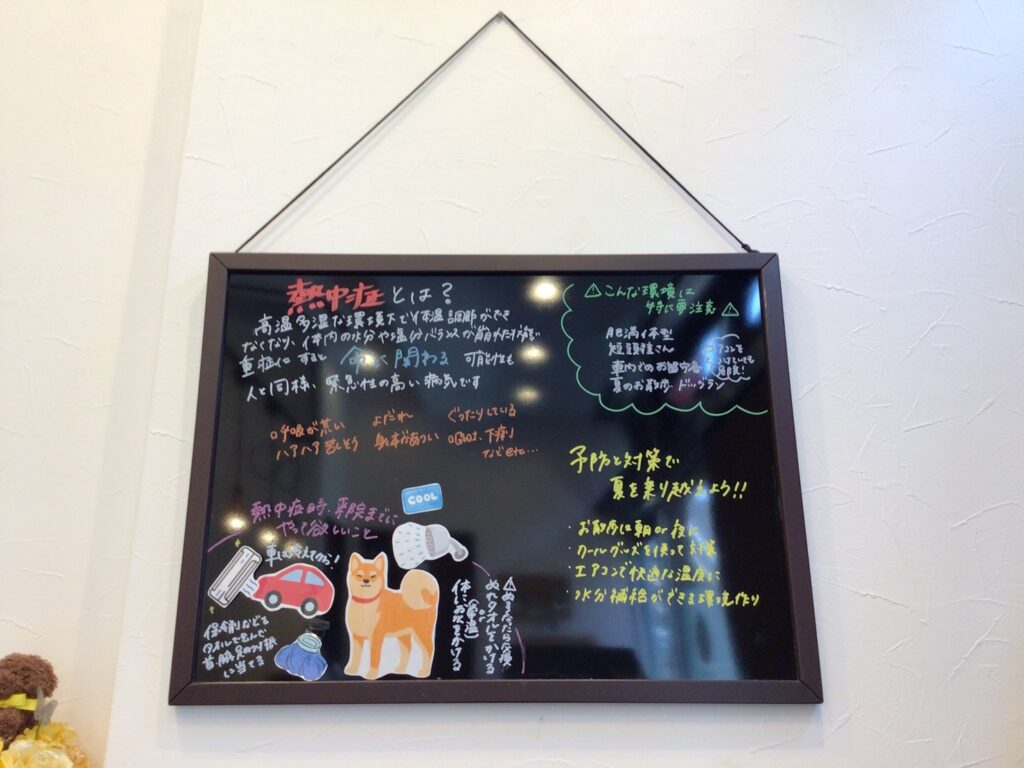 熱中症とは?
高温多湿な環境下で体温調節ができ
なくなり、体内の水分や塩分バランスが崩れた状態
重症化すると 命に関わる 可能性も
人と同様、緊急性の高い病気です
呼吸が荒い
ハアハア苦しそう
よだれ
身体があつい
ぐったりしている
嘔吐、下痢
など etc…
⚠こんな環境は
特に要注意⚠
肥満体型
短頭種さん
車内でのお留守番
夏のお散歩・ドッグラン
エアコンを
つけていても
危険!
予防と対策で
夏を乗り越えよう!!
・お散歩は朝or夜に
・クールグッズを使って対策
・エアコンで快適な温度に
・水分補給ができる環境作り
熱中症時、病院までに
やって欲しいこと
車は冷えてから!
COOL
保冷剤などを
タオルで包んで
首、脇、足のつけ根
に当てる
体にお水をかける
(常温)
ぬれタオルをかける
⚠ぬるくなったら交換